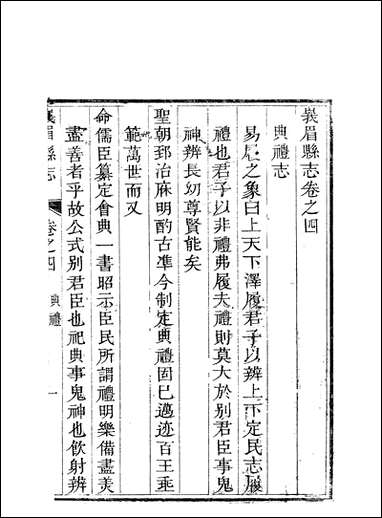 峩眉縣志卷之四
典禮志
易履之象曰上天下澤履君子以辨上下定民志履
禮也君子以非禮弗履夫禮則莫大於別君臣事鬼
神辨長幼尊賢能矣
聖朝郅治庥明酌古準今制定典禮固已邁迹百王垂
範萬世而又
命儒臣纂定會典一書昭示臣民所謂禮明樂備盡美
盡善者乎故公式別君臣也祀典事鬼神也飲射辨
峩眉縣志
卷之四
典禮
一